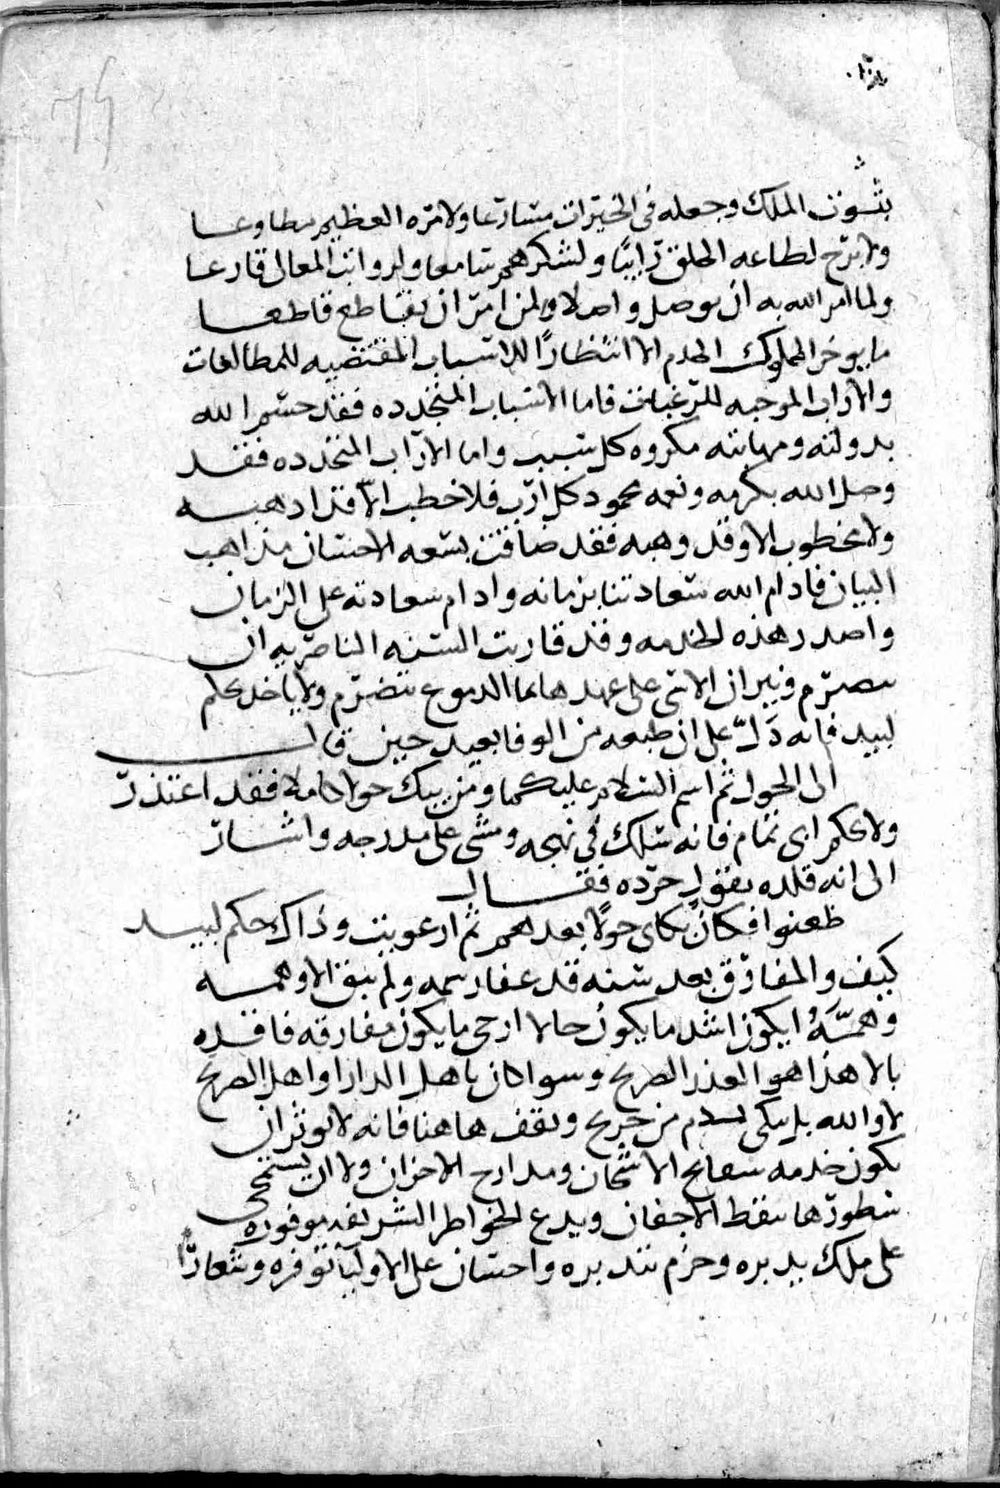 بشؤون الملك وجعله في الخيرات مسارعا ولامره العظيم مطاوعا
ولا برح لطاعه الخلق راييا ولشكرهم سامعا ولرواتب المعالي قارعا
ولما امر الله به ان يوصل واصلا ولمن امر ان يقاطع قاطعا
ما يوخر المملوك الخدم الا انتظارا للاسباب المقتضيه للمطالعات
والآراب الموجبه للرغبات فاما الاسباب المتجدده فقد حسم الله
بدولته ومهابته مكروه كل سبب واما الآراب المتجدده فقد
وصل الله بكرمه ونعمه محمود كل أرب فلا خطب الا قد ادهبه
ولا مخطوب الا وقد وهبه فقد ضاقت بسعه الاحسان مذاهب
البيان فادام الله سعادتنا بزمانه وادام سعادته على الزمان
واصدر هذه الخدمه وقد قاربت السنه الناصريه ان
تتصرم ونيران الاسى على عهدها بما الدموع تتضرم ولا ياخذ بحكم
لبيد فانه دل على ان طبعه من الوفا بعيد حين قال
الى الحول ثم اسم السلام عليكما ومن يبك حولا كاملا فقد اعتذر
ولا بحكم ابي تمام فانه سلك في نهجه ومشى على مدرجه واشار
الى انه قلده بقول جرده فقال
ظعنوا فكان بكاي حولا بعدهم ثم ارعويت وذاك حكم لبيد
كيف والمفارق بعد سنه قد عفا رسمه ولم يبق الا وهمه
وهمه ايكون اشد ما يكون حالا ارجى ما يكون مفارقه فاقده
بالا هذا هو الغدر الصريح وسوا كان باهل الدار او اهل الضريح
لا والله بل يبكي بدم من جريح ويقف هاهنا فانه لا يوثر ان
تكون خدمه سفايح الاشجان ومدارج الاحزان ولا ان يستمحى
سطورها بنقط الاجفان ويدع الخواطر الشريفه موفوره
على ملك يدبره وحزم يتدبره واحسان على الاوليا توفره وشعار